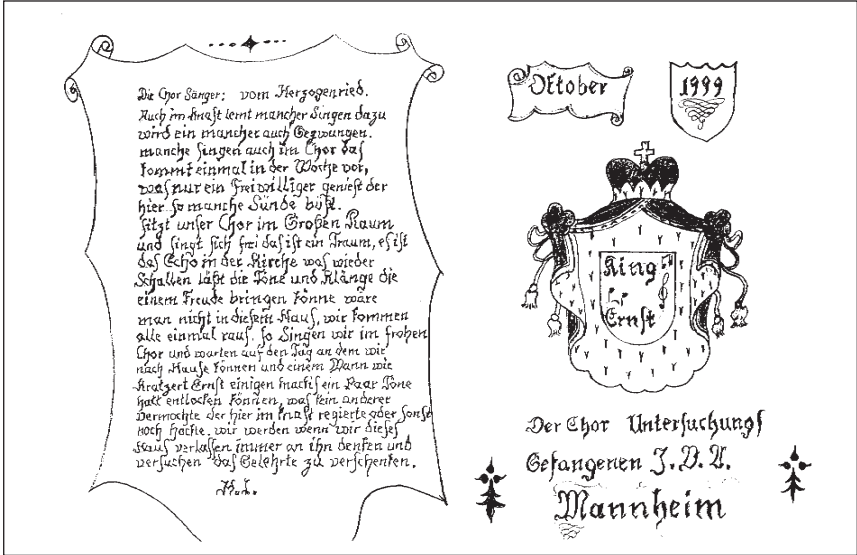 Die Chor Sänger; vom Herzogenried.
Auch im Knast lernt mancher Singen dazu
wird ein mancher auch Gezwungen.
manche Singen auch im Chor das
kommt einmal in der Woche vor,
was nur ein Freiwilliger genießt der
hier so manche Sünde büßt.
sitzt unser Chor im Großen Raum
und singt sich frei das ist ein Traum, es ist
das Echo in der Kirche was wieder
Schallen läßt die Töne und Klänge die
einem Freude bringen könne wäre
man nicht in diesem Haus, wir kommen
alle einmal raus. so Singen wir im frohen
Chor und warten auf den Tag an dem wir
nach Hause können und einem Mann wie
Kratzert Ernst einigen machts ein Paar Töne
hatt entlocken können, was kein anderer
Vermochte der hier im Knast regierte oder sonst
noch hockte. wir werden wenn wir dieses
Haus verlassen immer an ihn denken und
versuchen das Gelehrte zu verschenken.
Oktober
1999
King
Ernst
Der Chor Untersuchungs
Gefangenen J.V.A.
Mannheim